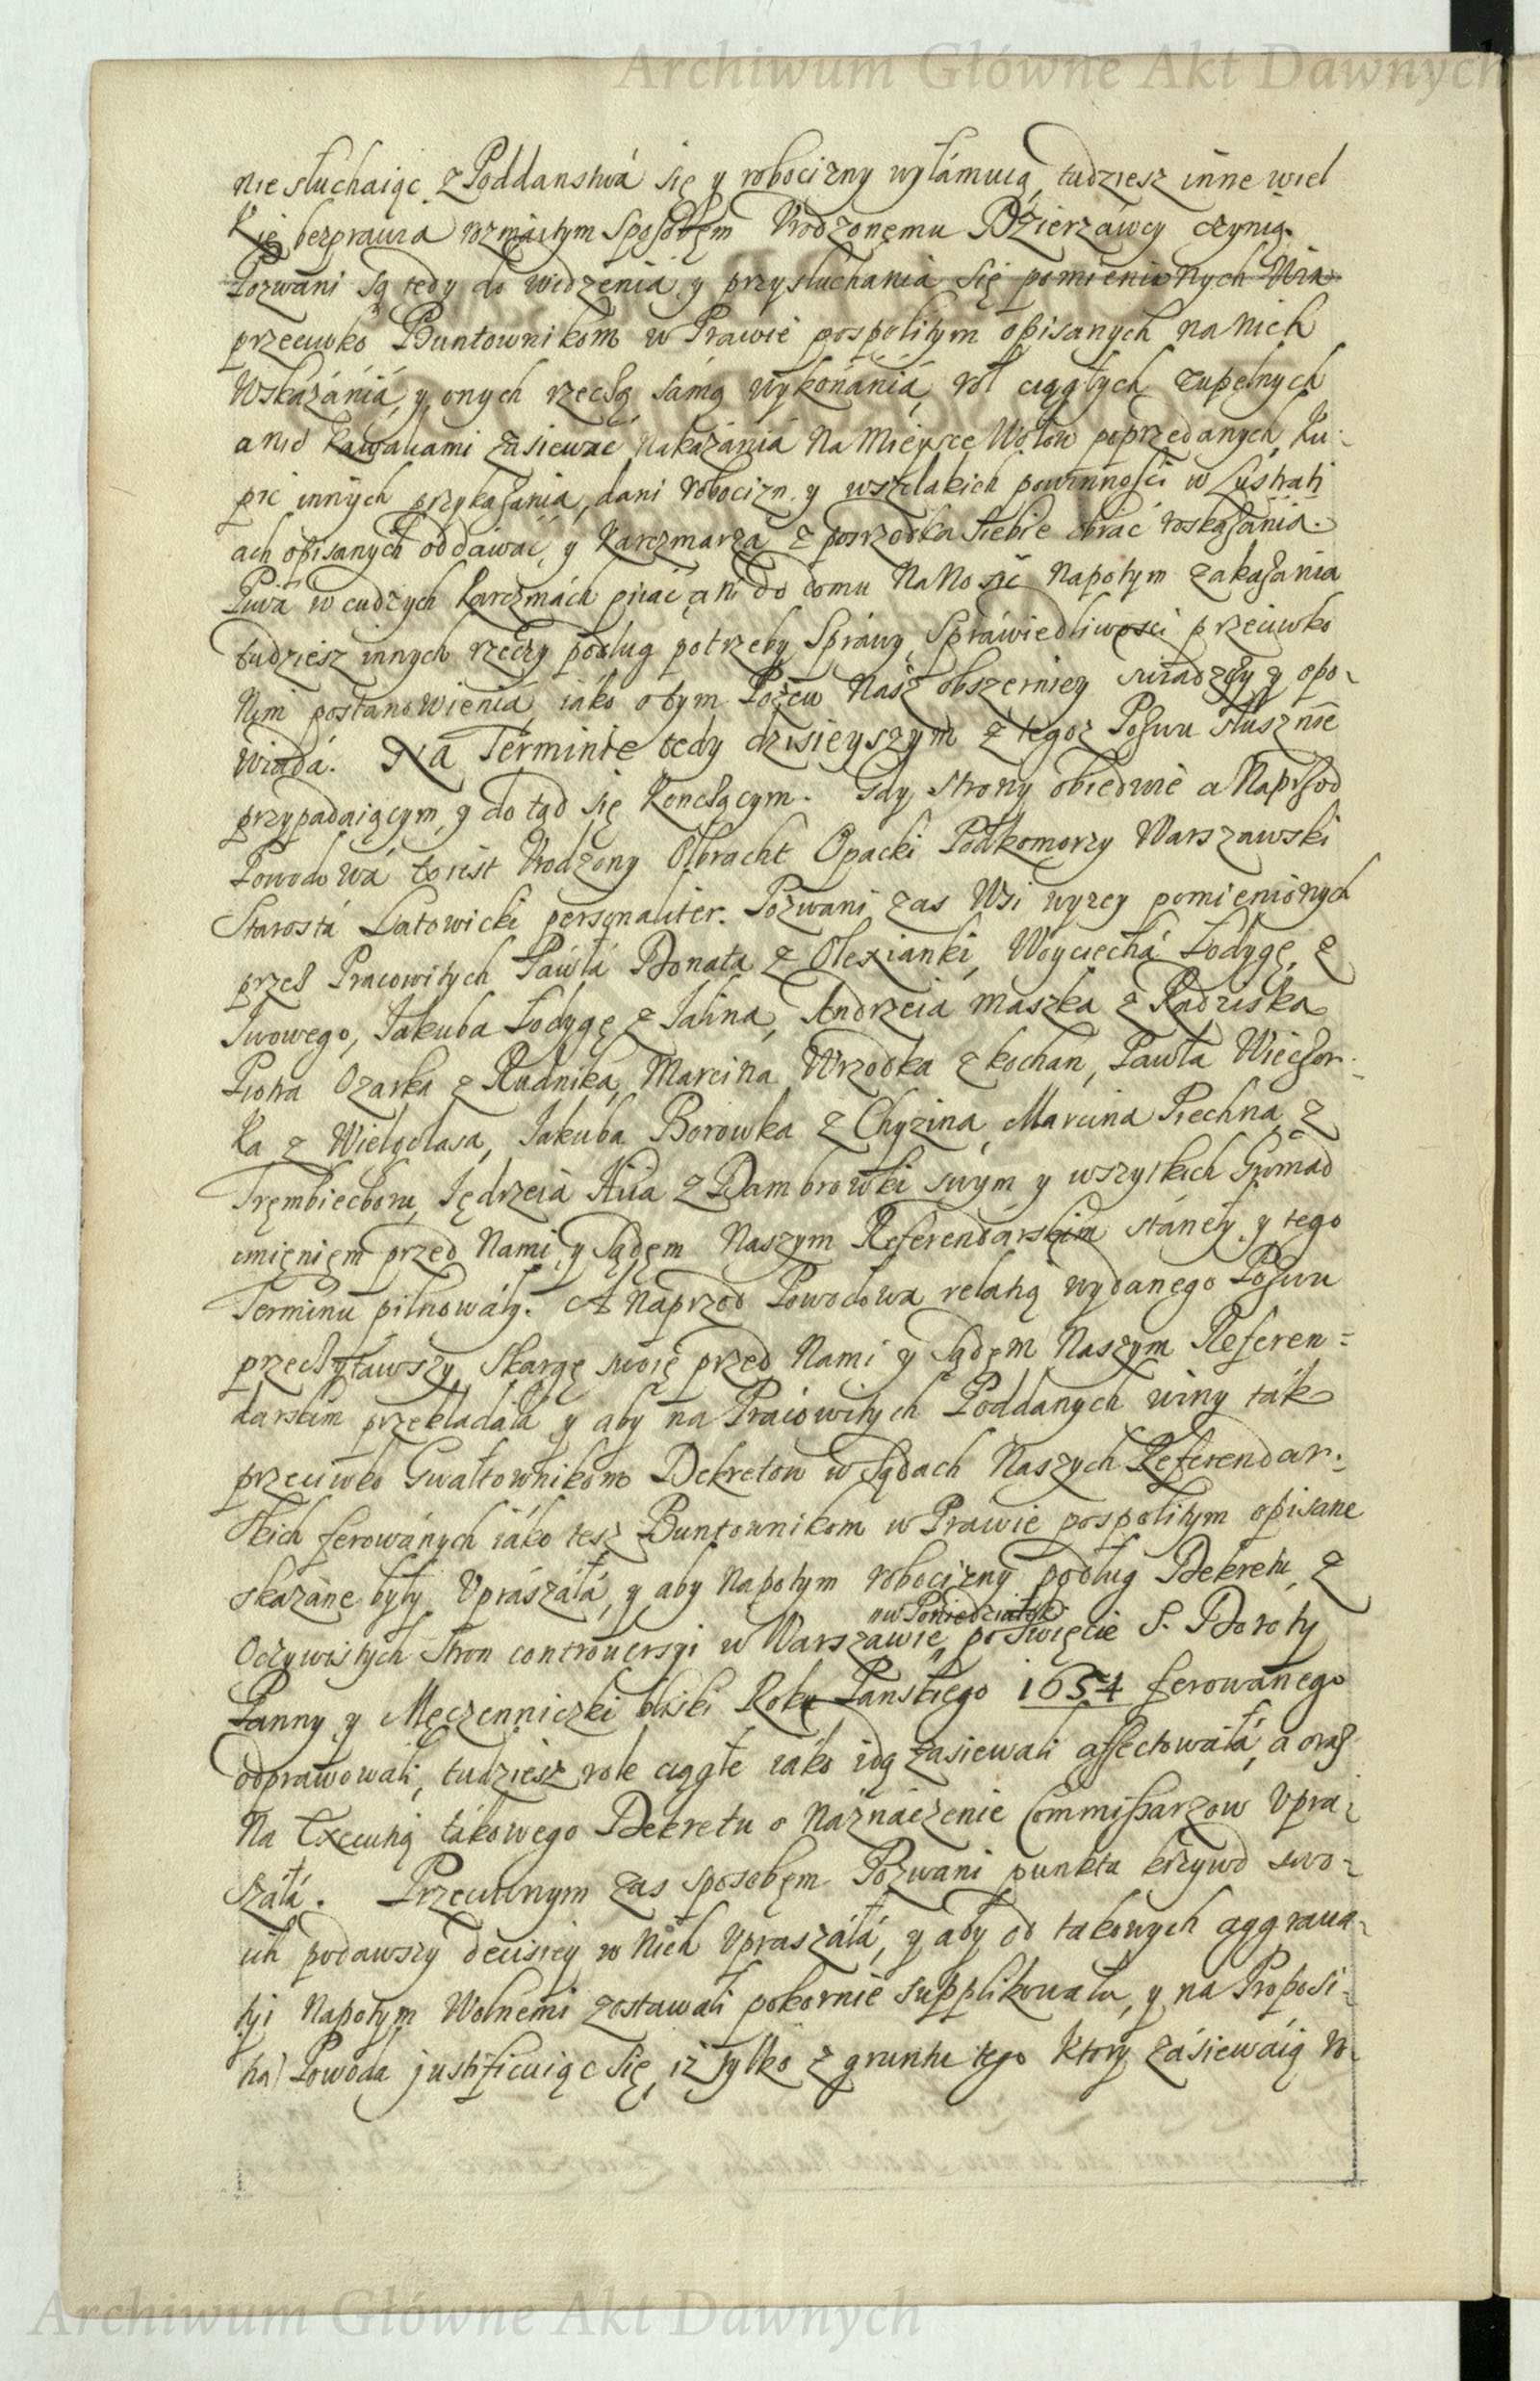 Archiwum Główne Akt Dawnych
nie słuchaiąc z Poddanstwá się y robocizny wyłámuią, tudziesz inne wiel
kie bezprawia rozmáitym sposobęm Vrodzonęmu Dzierzawcy czynią.
Pozwani są tedy do widzenia y przysłuchania się pomienionych Win
przeciwko Buntownikom w Prawie pospolitym opisanych na nich
Wskazániá, y onych rzeczą sámą wykonániá, ról ciągłych zupełnych
a nie kawałkami zásiewác nakazánia Na Mieysce Wołow poprzedanych, ku-
pic innych przykazania, dani robocizn y wszelakich powinności w Lustrati
ach opisanych oddáwać, y Karczmarza z posrzodka siebie obrać roskazánia.
Piwá w cudzych karczmách pijać ani do domu Nanosić Napotym zakazania
tudziesz innych rzeczy podług potrzeby Spráwy, Spráwiedliwości przeciwko
Nim postanowieniá, iáko o tym Pozew Nasz obszerniey swiadczy y opo-
wiáda. Na Terminie tedy dzisieyszym z tegoz Pozwu słusznie
przypadaiącym, y do tąd się Konczącym. Gdy strony obiedwie a Naprzod
Powodowá to iest Vrodzony Olbracht Opacki Podkomorzy Warszawski
Starostá Latowicki personaliter. Pozwani zas Wsi wyzey pomienionych
przez Pracowitych Páwłá Donata z Olexianki, Woyciechá Łodygę, z
Iwowego, Iakuba Łodygę z Ialina, Andrzeia Maszka z Radziska
Piotra Ozarka z Rudnika, Marcina Wrzodka z kochan, Pawła Wieczor-
ka z Wielgolasa, Iakuba Borowka z Chyzina, Marcina Piechna, z
Tręmbieczboru, Iędrzeia Kiia z Dambrowki swym y wszystkich Gromad
imięnięm przed Nami y Sądęm Naszym Referendárskim stánęły, y tego
Terminu pilnowáły. A Naprzod Powodowa relatią wydanego Pozwu
przeczytáwszy, Skargę swoię przed Nami y Sądęm Naszym Referen=
darskim przekładáła y aby na Praiowitych Poddanych winy ták
przeciwko Gwałtownikom Dekretow w Sądach Naszych Referendar-
skich ferowánych iáko tesz Buntownikom w Prawie pospolitym opisane
skazáne były Vprászáłá, y aby Napotym robocizny podług Dekretu, z
Oczywistych Stron controuersyi w Warszawie, w Poniedziałek po Swięcie S. Doroty
Panny y Męczenniczki bliski Roku Panskiego 1654 ferowanego
odprawowali, tudziesz role ciągłe iáko idą zasiewali affectowáłá, a oraz
Na Executią tákowego Dekretu o Náznáczenie Commissarzow Vpra-
száłá. Przeciwnym zas sposobęm Pozwani punkta krzywd swo-
ich podawszy decisiey w nich Vpraszáłá, y aby od takowych aggraua-
tyi Napotym Wolnemi zostawali pokornie supplikowała, y na Proposi-
tią Powoda justificuiąc się, iż tylko z gruntu tego ktory zásiewáią ro-
Archiwum Główne Akt Dawnych